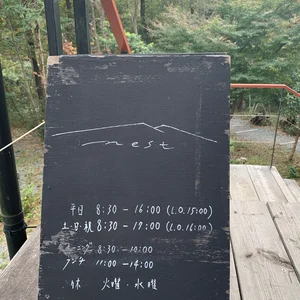 nest
平日 8:30 - 16:00 (L.O.15:00)
土・日・祝 8:30 - 17:00 (L.O.16:00)
モーニング 8:30 - 10:00
ランチ 11:00 - 14:00
休 火曜・水曜